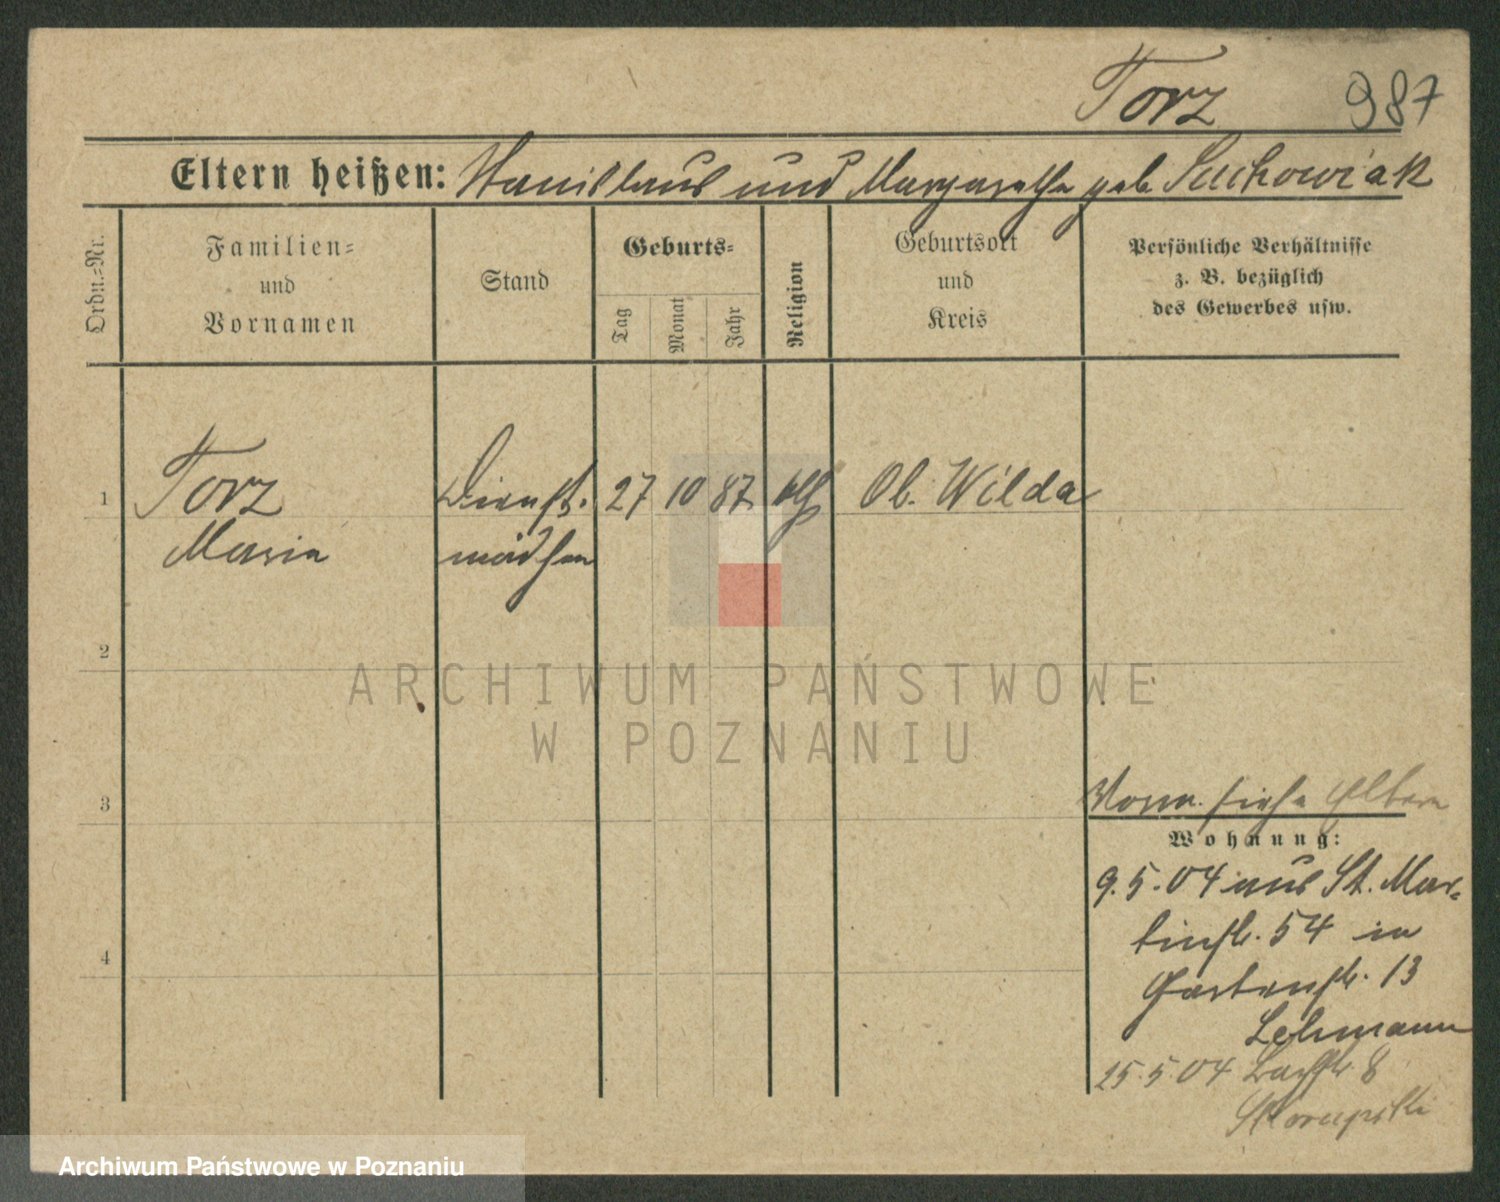 Torz 987
Eltern heißen: Stanislaus und Margarethe geb Suchowiak
Ordn.=Nr.
Familien=
und
Vornamen
Stand
Geburts=
Tag
Monat
Jahr
Religion
Geburtsort
und
Kreis
Persönliche Verhältnisse
z. B. bezüglich
des Gewerbes usw.
1 Torz Dienst. 27 10 87 kth Ob. Wilda
Maria mädchen
2
ARCHIWUM PAŃSTWOWE
W POZNANIU
3 Vorm. siehe Eltern
Wohnung:
9.5.04 aus St. Mar=
tinstr. 54 in
4 Gartenstr. 13
Lehmann
25.5.04 8
Skorupski
Archiwum Państwowe w Poznaniu